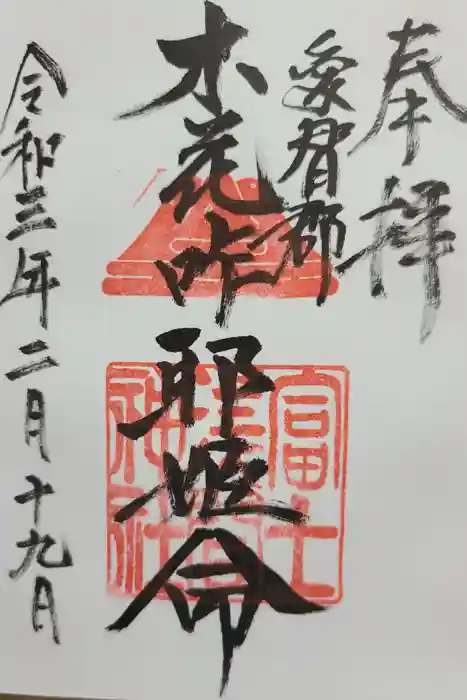 奉拝
愛智郡
木花咲耶姫命
令和三年二月十九日
富士
浅間
神社